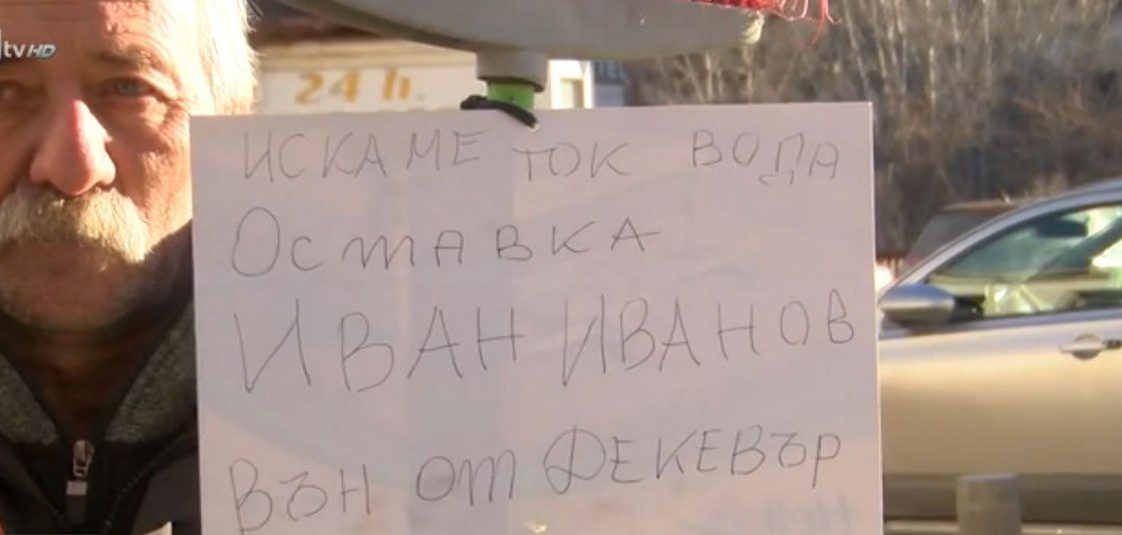 tv HD
24 h.
ИСКАМЕ ТОК ВОДА
ОСТАВКА
ИВАН ИВАНОВ
ВЪН ОТ ДЕКЕВЪР